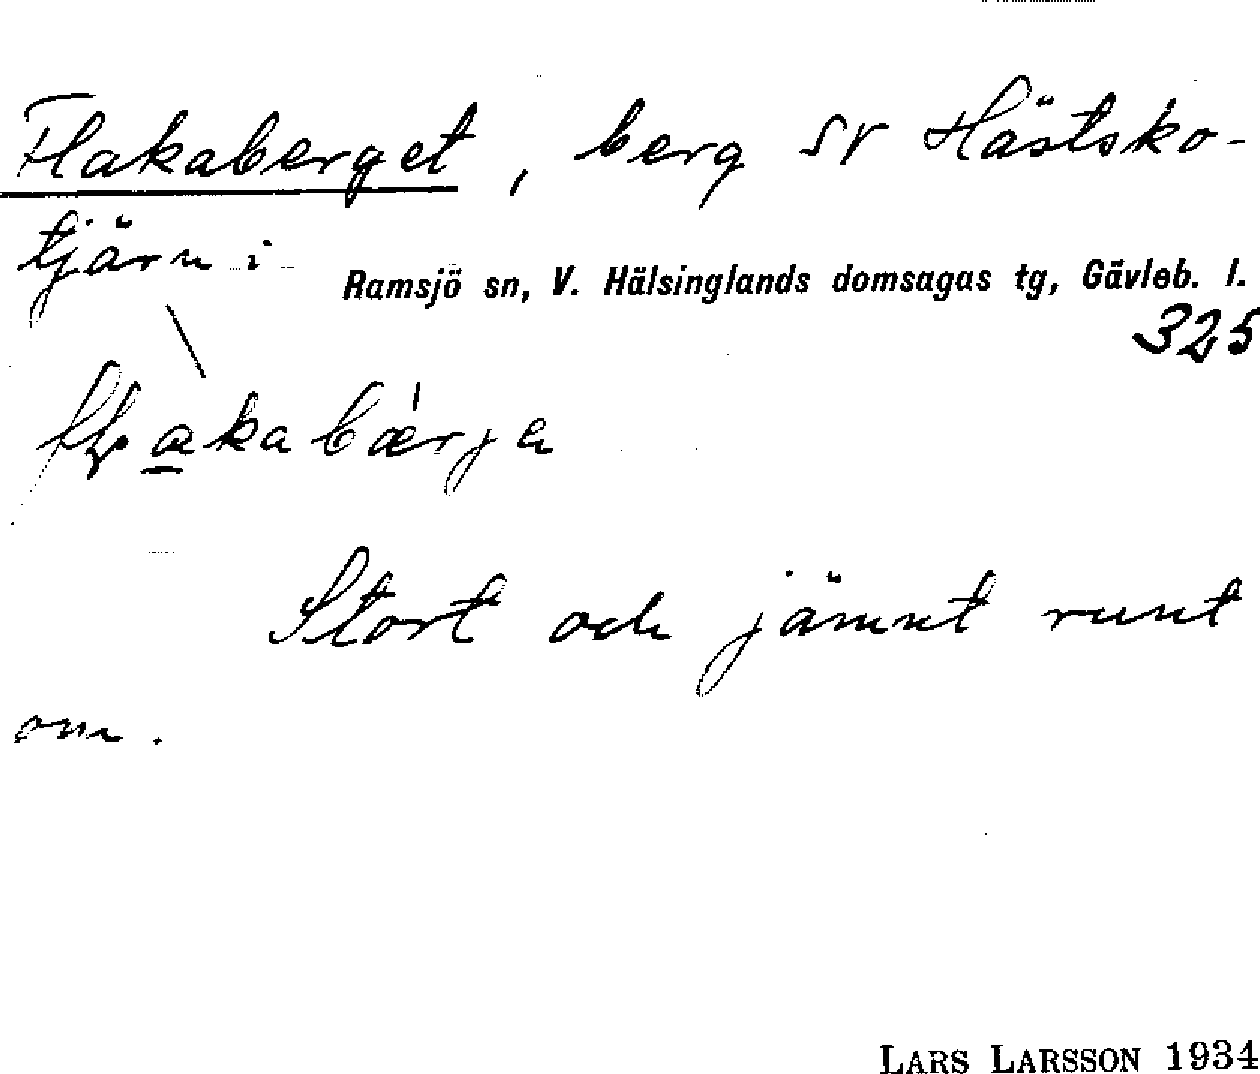 Flakaberget, berg SV Hästsko-
tjärn i
Ramsjö sn, V. Hälsinglands domsagas tg, Gävleb. l.
325
Stort och jämnt runt
om.
LARS LARSSON 1934